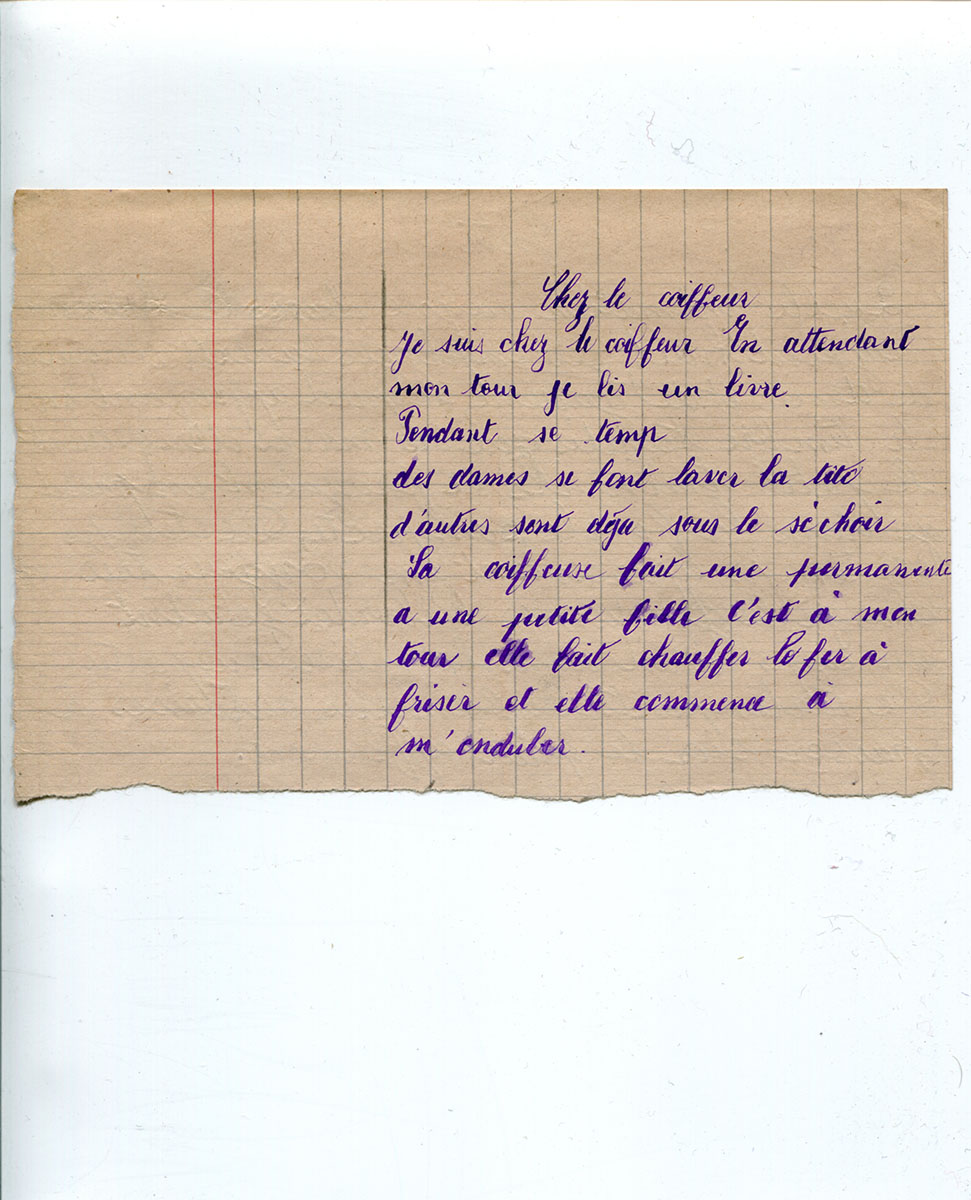 Chez le coiffeur
Je suis chez le coiffeur En attendant
mon tour je lis un livre.
Pendant se temp
des dames se font laver la tite
d'autres sont déja sous le séchoir
La coiffeuse fait une permanente
a une petite fille C'est à mon
tour elle fait chauffer le fer à
friser et elle commence à
m'onduler.